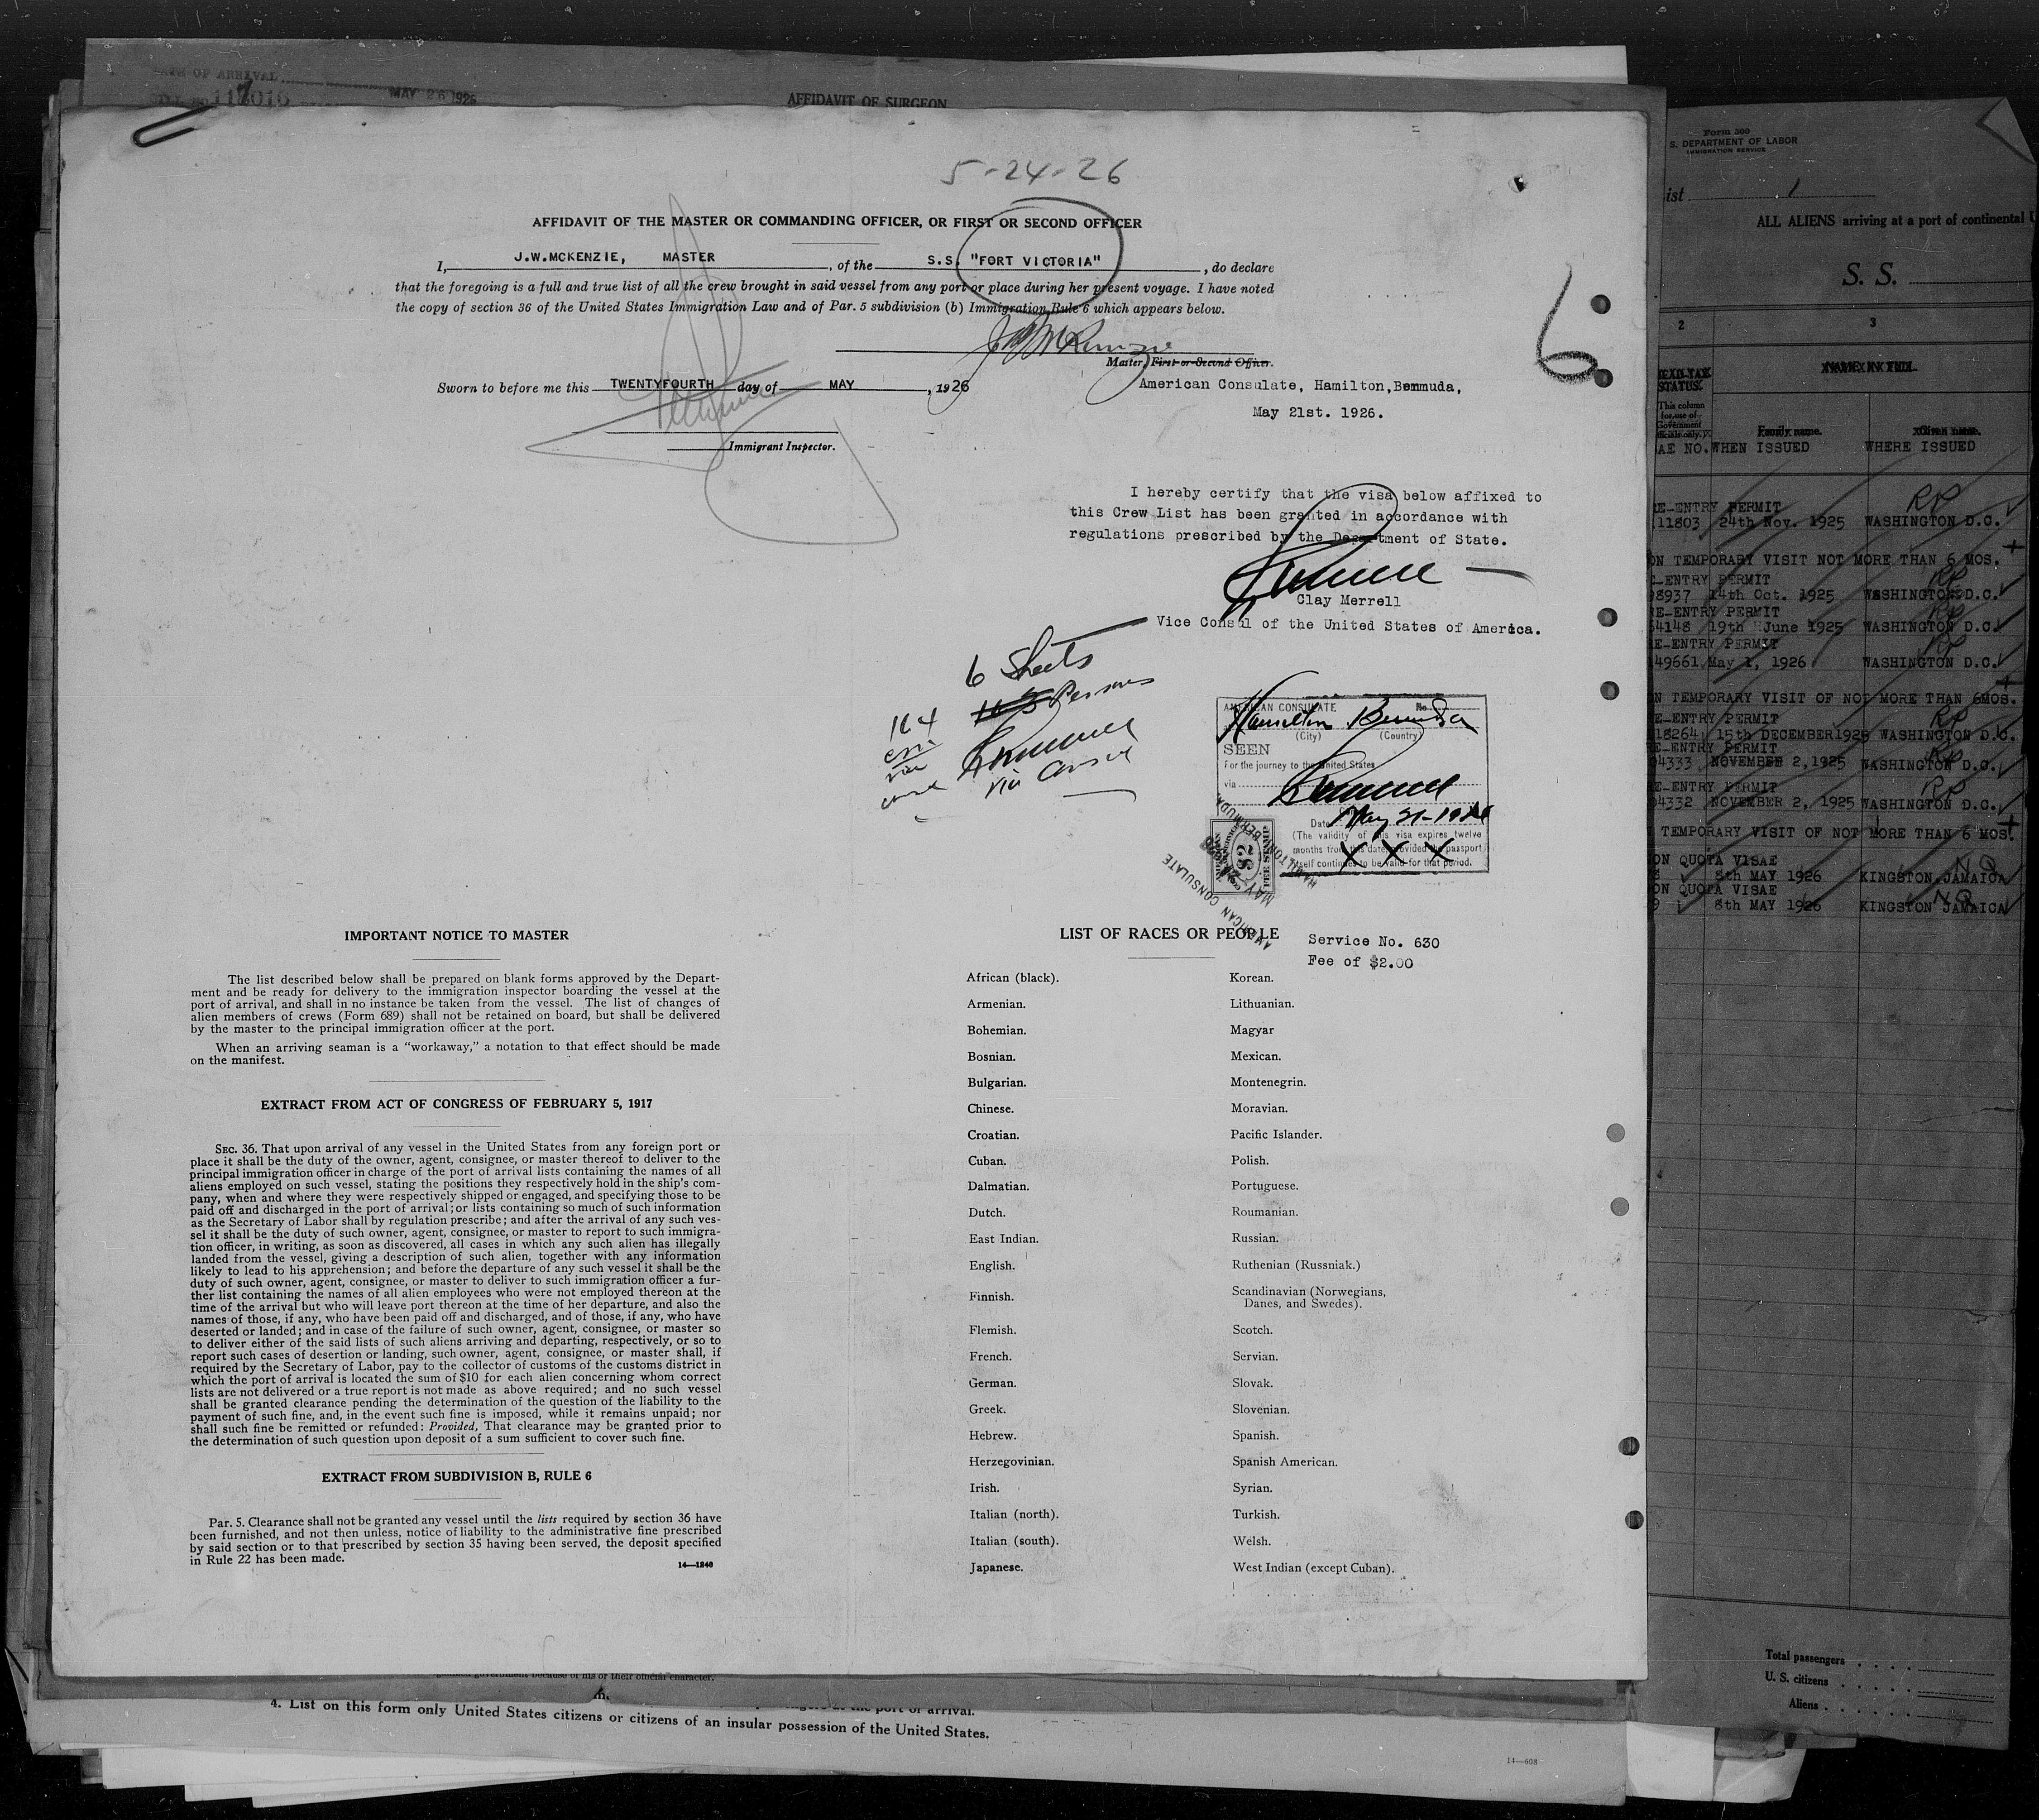 DATE OF ARRIVAL
MAY 26 1926
AFFIDAVIT OF SURGEON
5-24-26
AFFIDAVIT OF THE MASTER OR COMMANDING OFFICER, OR FIRST OR SECOND OFFICER
I, J.W.MCKENZIE, MASTER, of the S.S. "FORT VICTORIA", do declare
that the foregoing is a full and true list of all the crew brought in said vessel from any port or place during her present voyage. I have noted
the copy of section 36 of the United States Immigration Law and of Par. 5 subdivision (b) Immigration Rule 6 which appears below.
J W McKenzie
Master, First or Second Officer.
Sworn to before me this TWENTYFOURTH day of MAY, 1926
Immigrant Inspector.
6
American Consulate, Hamilton, Bermuda,
May 21st. 1926.
I hereby certify that the visa below affixed to
this Crew List has been granted in accordance with
regulations prescribed by the Department of State.
Clay Merrell
Vice Consul of the United States of America.
6 Sheets
165 Persons
164
AMERICAN CONSULATE No.
Hamilton Bermuda
(City) (Country)
SEEN
For the journey to the United States
via
Date May 21-1926
(The validity of this visa expires twelve
months from this date provided the passport
itself continues to be valid for that period.
X X X
$2
FEE STAMP
AMERICAN CONSULATE
HAMILTON BERMUDA
MAY
Service No. 630
Fee of $2.00
IMPORTANT NOTICE TO MASTER
The list described below shall be prepared on blank forms approved by the Depart-
ment and be ready for delivery to the immigration inspector boarding the vessel at the
port of arrival, and shall in no instance be taken from the vessel. The list of changes of
alien members of crews (Form 689) shall not be retained on board, but shall be delivered
by the master to the principal immigration officer at the port.
When an arriving seaman is a “workaway,” a notation to that effect should be made
on the manifest.
EXTRACT FROM ACT OF CONGRESS OF FEBRUARY 5, 1917
SEC. 36. That upon arrival of any vessel in the United States from any foreign port or
place it shall be the duty of the owner, agent, consignee, or master thereof to deliver to the
principal immigration officer in charge of the port of arrival lists containing the names of all
aliens employed on such vessel, stating the positions they respectively hold in the ship's com-
pany, when and where they were respectively shipped or engaged, and specifying those to be
paid off and discharged in the port of arrival; or lists containing so much of such information
as the Secretary of Labor shall by regulation prescribe; and after the arrival of any such ves-
sel it shall be the duty of such owner, agent, consignee, or master to report to such immigra-
tion officer, in writing, as soon as discovered, all cases in which any such alien has illegally
landed from the vessel, giving a description of such alien, together with any information
likely to lead to his apprehension; and before the departure of any such vessel it shall be the
duty of such owner, agent, consignee, or master to deliver to such immigration officer a fur-
ther list containing the names of all alien employees who were not employed thereon at the
time of the arrival but who will leave port thereon at the time of her departure, and also the
names of those, if any, who have been paid off and discharged, and of those, if any, who have
deserted or landed; and in case of the failure of such owner, agent, consignee, or master so
to deliver either of the said lists of such aliens arriving and departing, respectively, or so to
report such cases of desertion or landing, such owner, agent, consignee, or master shall, if
required by the Secretary of Labor, pay to the collector of customs of the customs district in
which the port of arrival is located the sum of $10 for each alien concerning whom correct
lists are not delivered or a true report is not made as above required; and no such vessel
shall be granted clearance pending the determination of the question of the liability to the
payment of such fine, and, in the event such fine is imposed, while it remains unpaid; nor
shall such fine be remitted or refunded: Provided, That clearance may be granted prior to
the determination of such question upon deposit of a sum sufficient to cover such fine.
EXTRACT FROM SUBDIVISION B, RULE 6
Par. 5. Clearance shall not be granted any vessel until the lists required by section 36 have
been furnished, and not then unless, notice of liability to the administrative fine prescribed
by said section or to that prescribed by section 35 having been served, the deposit specified
in Rule 22 has been made.
14—1240
LIST OF RACES OR PEOPLE
African (black).
Armenian.
Bohemian.
Bosnian.
Bulgarian.
Chinese.
Croatian.
Cuban.
Dalmatian.
Dutch.
East Indian.
English.
Finnish.
Flemish.
French.
German.
Greek.
Hebrew.
Herzegovinian.
Irish.
Italian (north).
Italian (south).
Japanese.
Korean.
Lithuanian.
Magyar
Mexican.
Montenegrin.
Moravian.
Pacific Islander.
Polish.
Portuguese.
Roumanian.
Russian.
Ruthenian (Russniak.)
Scandinavian (Norwegians,
Danes, and Swedes).
Scotch.
Servian.
Slovak.
Slovenian.
Spanish.
Spanish American.
Syrian.
Turkish.
Welsh.
West Indian (except Cuban).
4. List on this form only United States citizens or citizens of an insular possession of the United States.
14—608
Form 500
S. DEPARTMENT OF LABOR
IMMIGRATION SERVICE
ist 1
ALL ALIENS arriving at a port of continental U
S. S.
2 3
STATUS
This column
for use of
Government
officials only.
Family name. Given name.
AE NO. WHEN ISSUED WHERE ISSUED
RE-ENTRY PERMIT RP
11803 24th Nov. 1925 WASHINGTON D.C.
ON TEMPORARY VISIT NOT MORE THAN 6 MOS.
E-ENTRY PERMIT RP
98937 14th Oct. 1925 WASHINGTON D.C.
RE-ENTRY PERMIT RP
54148 19th June 1925 WASHINGTON D.C.
RE-ENTRY PERMIT RP
49661 May 1, 1926 WASHINGTON D.C.
N TEMPORARY VISIT OF NOT MORE THAN 6MOS.
RE-ENTRY PERMIT RP
18264 15th DECEMBER1925 WASHINGTON D.C.
RE-ENTRY PERMIT RP
04333 NOVEMBER 2,1925 WASHINGTON D.C.
RE-ENTRY PERMIT RP
04332 NOVEMBER 2, 1925 WASHINGTON D.C.
TEMPORARY VISIT OF NOT MORE THAN 6 MOS.
ON QUOTA VISAE NQ
8th MAY 1926 KINGSTON JAMAICA
ON QUOTA VISAE NQ
9 8th MAY 1926 KINGSTON JAMAICA
Total passengers
U. S. citizens
Aliens